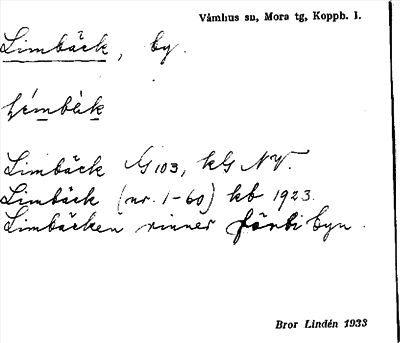 Våmhus sn, Mora tg, Koppb. l.
Limbäck, by.
Limbäck G 103, kG NV.
Limbäck (nr. 1-60) kb 1923.
Limbäcken rinner förbi byn.
Bror Lindén 1933